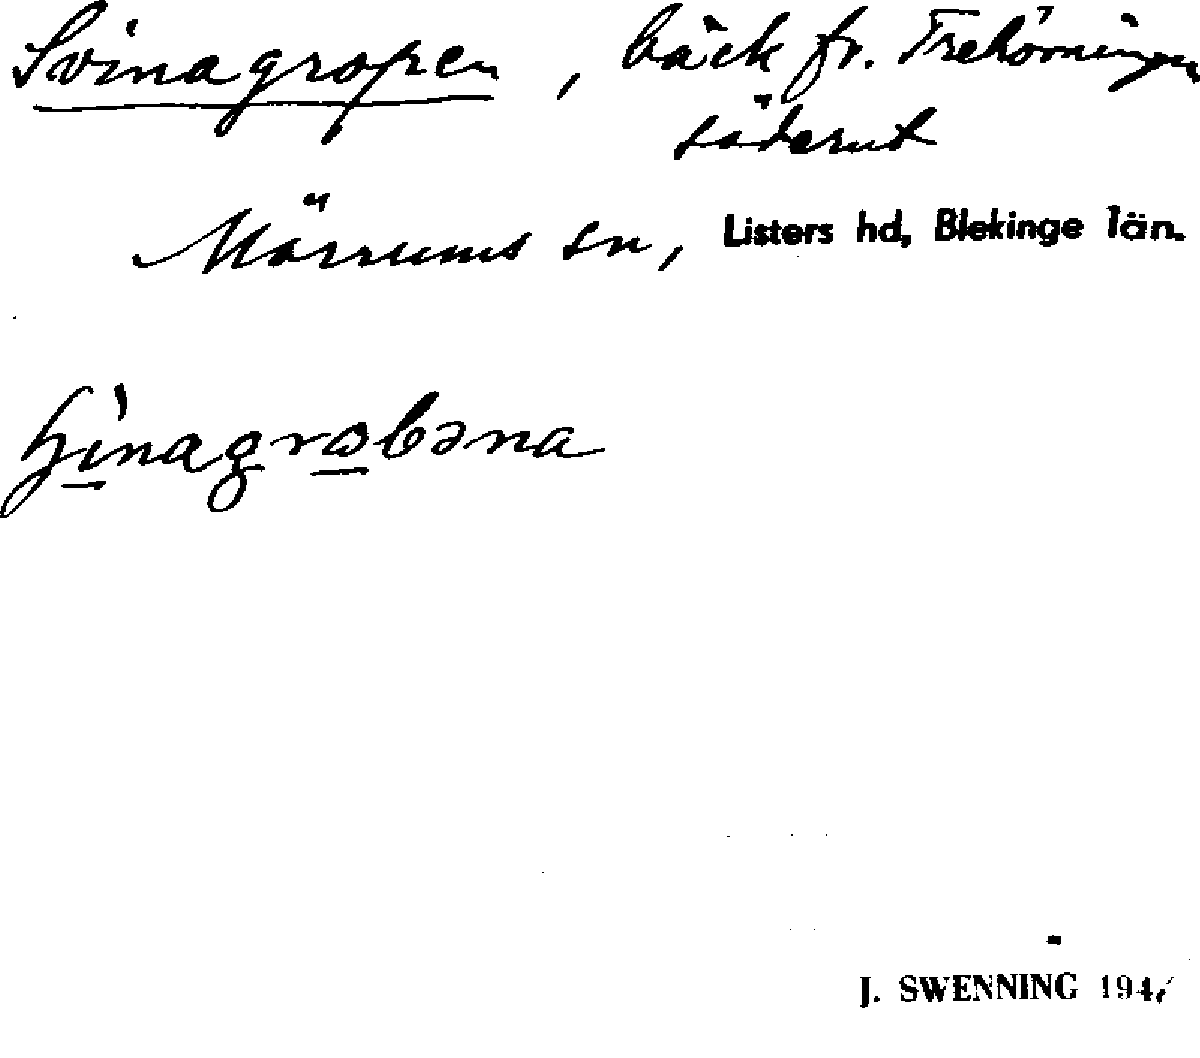 Svinagropen, bäck fr. Trehörningen
söderut
Mörrums sn, Listers hd, Blekinge län.
J. SWENNING 194